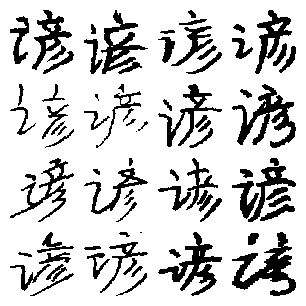 谚谚谚谚
谚谚谚谚
谚谚谚谚
谚谚谚谚